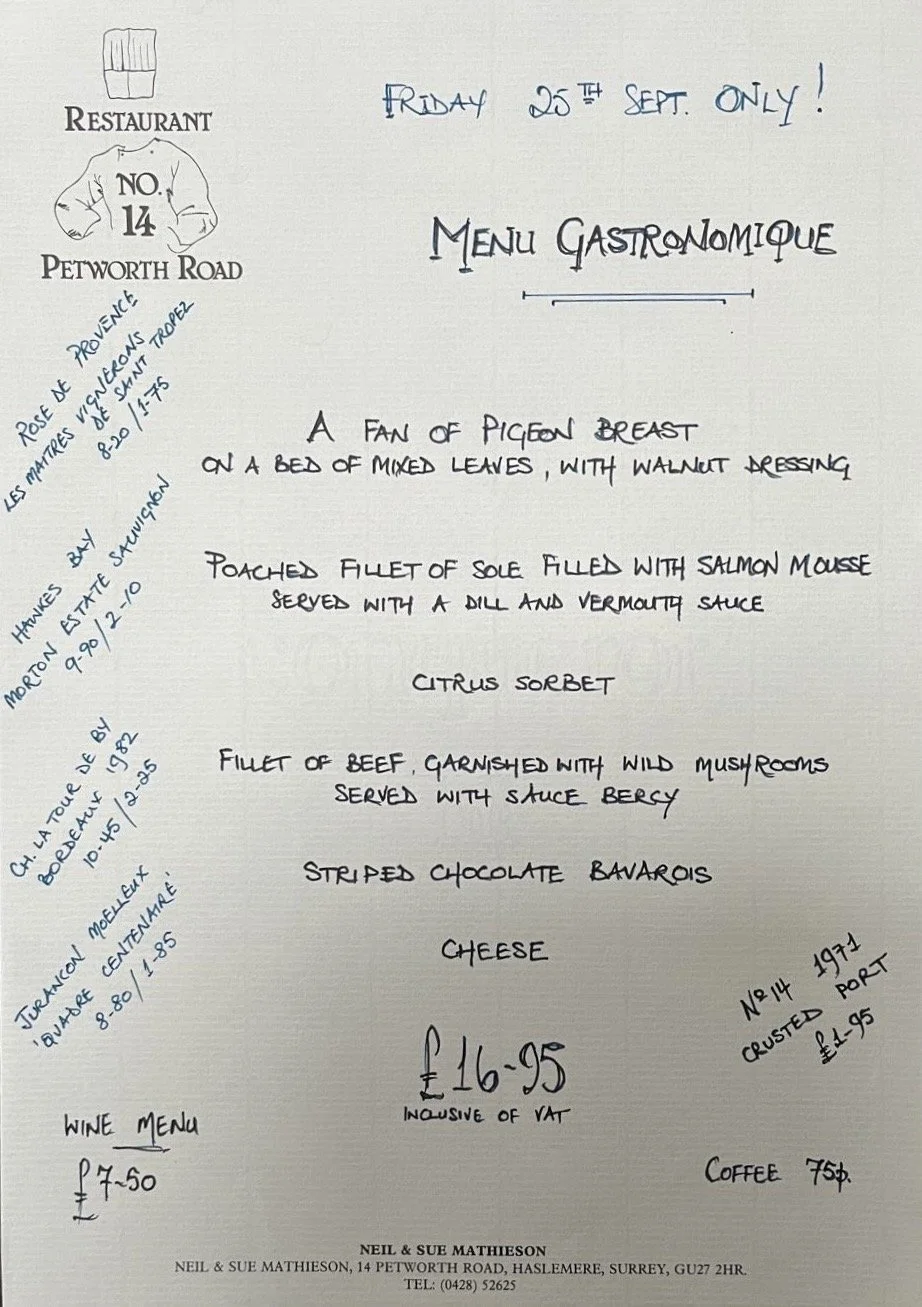 RESTAURANT
NO.
14
PETWORTH ROAD
FRIDAY 25TH SEPT. ONLY!
MENU GASTRONOMIQUE
ROSE DE PROVENCE
LES MAITRES VIGNERONS
DE SAINT TROPEZ
8-20/1-75
A FAN OF PIGEON BREAST
ON A BED OF MIXED LEAVES, WITH WALNUT DRESSING
HAWKES BAY
MORTON ESTATE SAUVIGNON
9-90/2-10
POACHED FILLET OF SOLE FILLED WITH SALMON MOUSSE
SERVED WITH A DILL AND VERMOUTH SAUCE
CITRUS SORBET
CH. LA TOUR DE BY
BORDEAUX 1982
10-45/2-25
FILLET OF BEEF, GARNISHED WITH WILD MUSHROOMS
SERVED WITH SAUCE BERCY
JURANCON MOELLEUX
'QUADRE CENTENAIRE'
8-80/1-85
STRIPED CHOCOLATE BAVAROIS
CHEESE
Nº14 1971
CRUSTED PORT
£1-95
£16-95
INCLUSIVE OF VAT
WINE MENU
£7-50
COFFEE 75p.
NEIL & SUE MATHIESON
NEIL & SUE MATHIESON, 14 PETWORTH ROAD, HASLEMERE, SURREY, GU27 2HR.
TEL: (0428) 52625